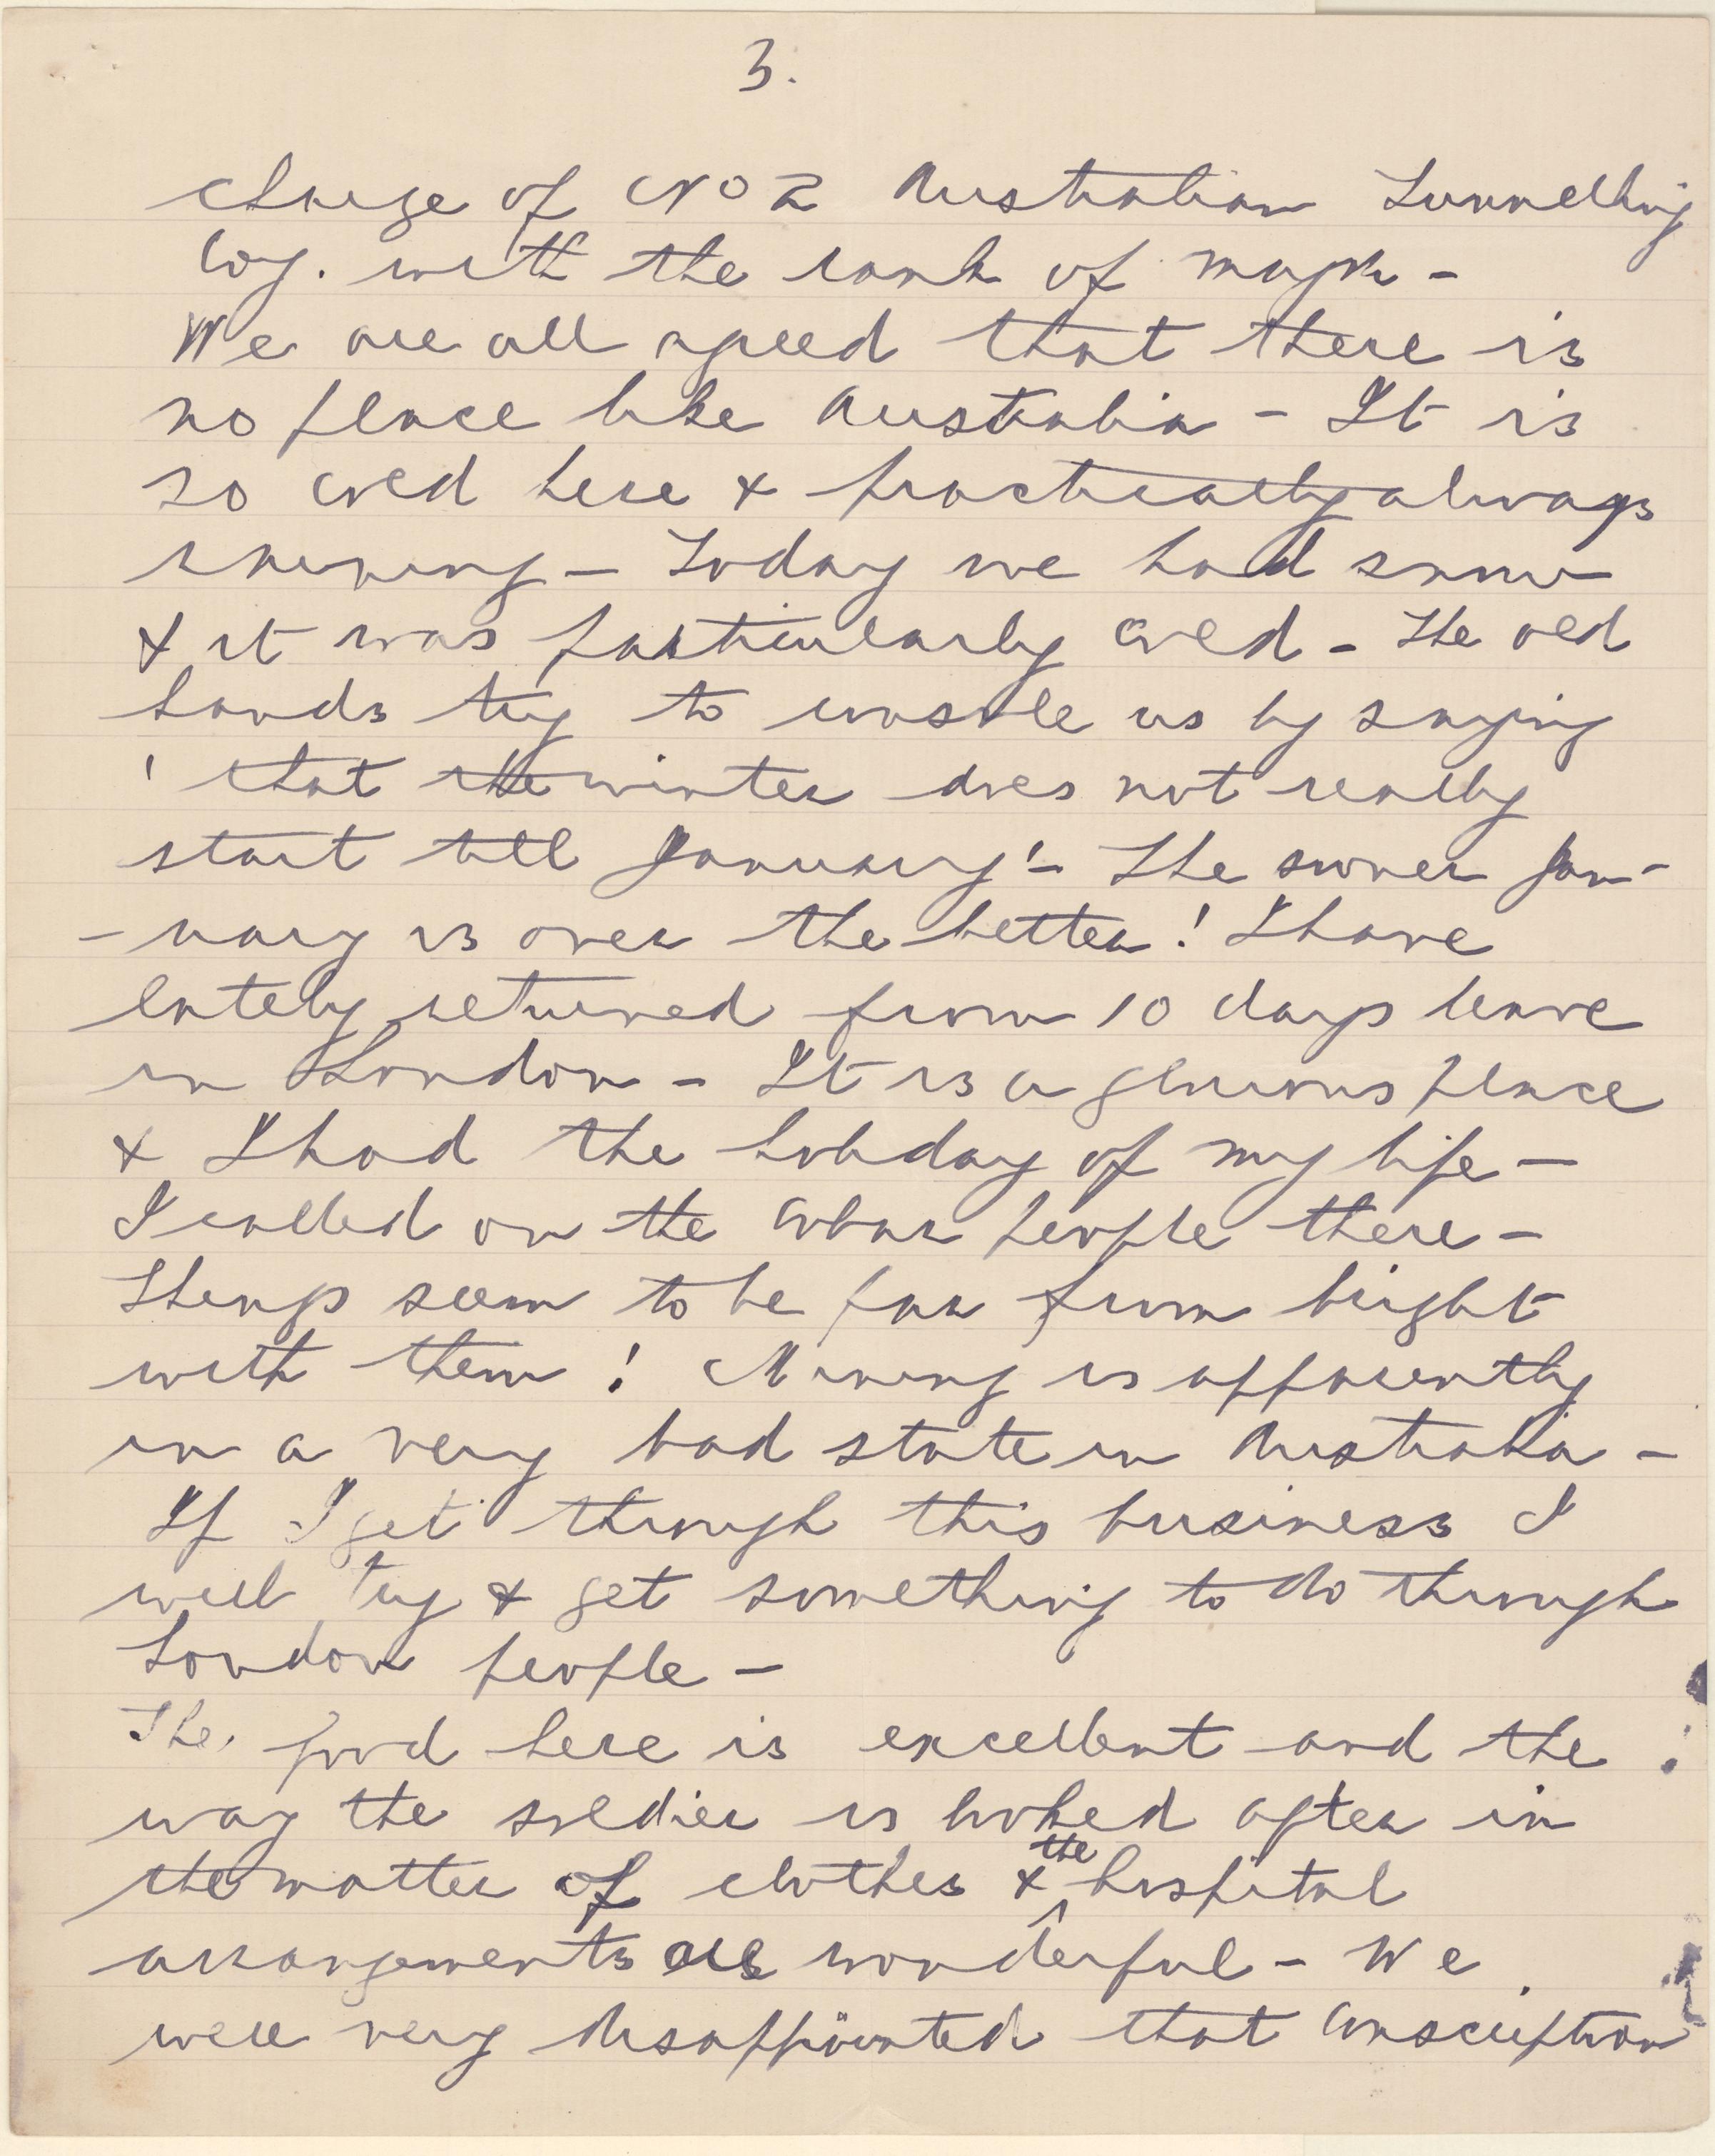 3.
charge of No 2 Australian Tunnelling
Coy. with the rank of major -
We are all agreed that there is
no place like Australia - It is
so cold here & practically always
raining - Today we had snow
& it was particularly cold - The old
hands try to console us by saying
' that the winter does not really
start till January' - The sooner Jan-
-uary is over the better! I have
lately returned from 10 days leave
in London - It is a glorious place
& I had the holiday of my life -
I called on the Cobar people there -
Things seem to be far from bright
with them! Mining is apparently
in a very bad state in Australia -
If I get through this business I
will try & get something to do through
London people -
The food here is excellent and the
way the soldier is looked after in
the matter of clothes & the hospital
arrangements are wonderful - We
were very disappointed that conscription